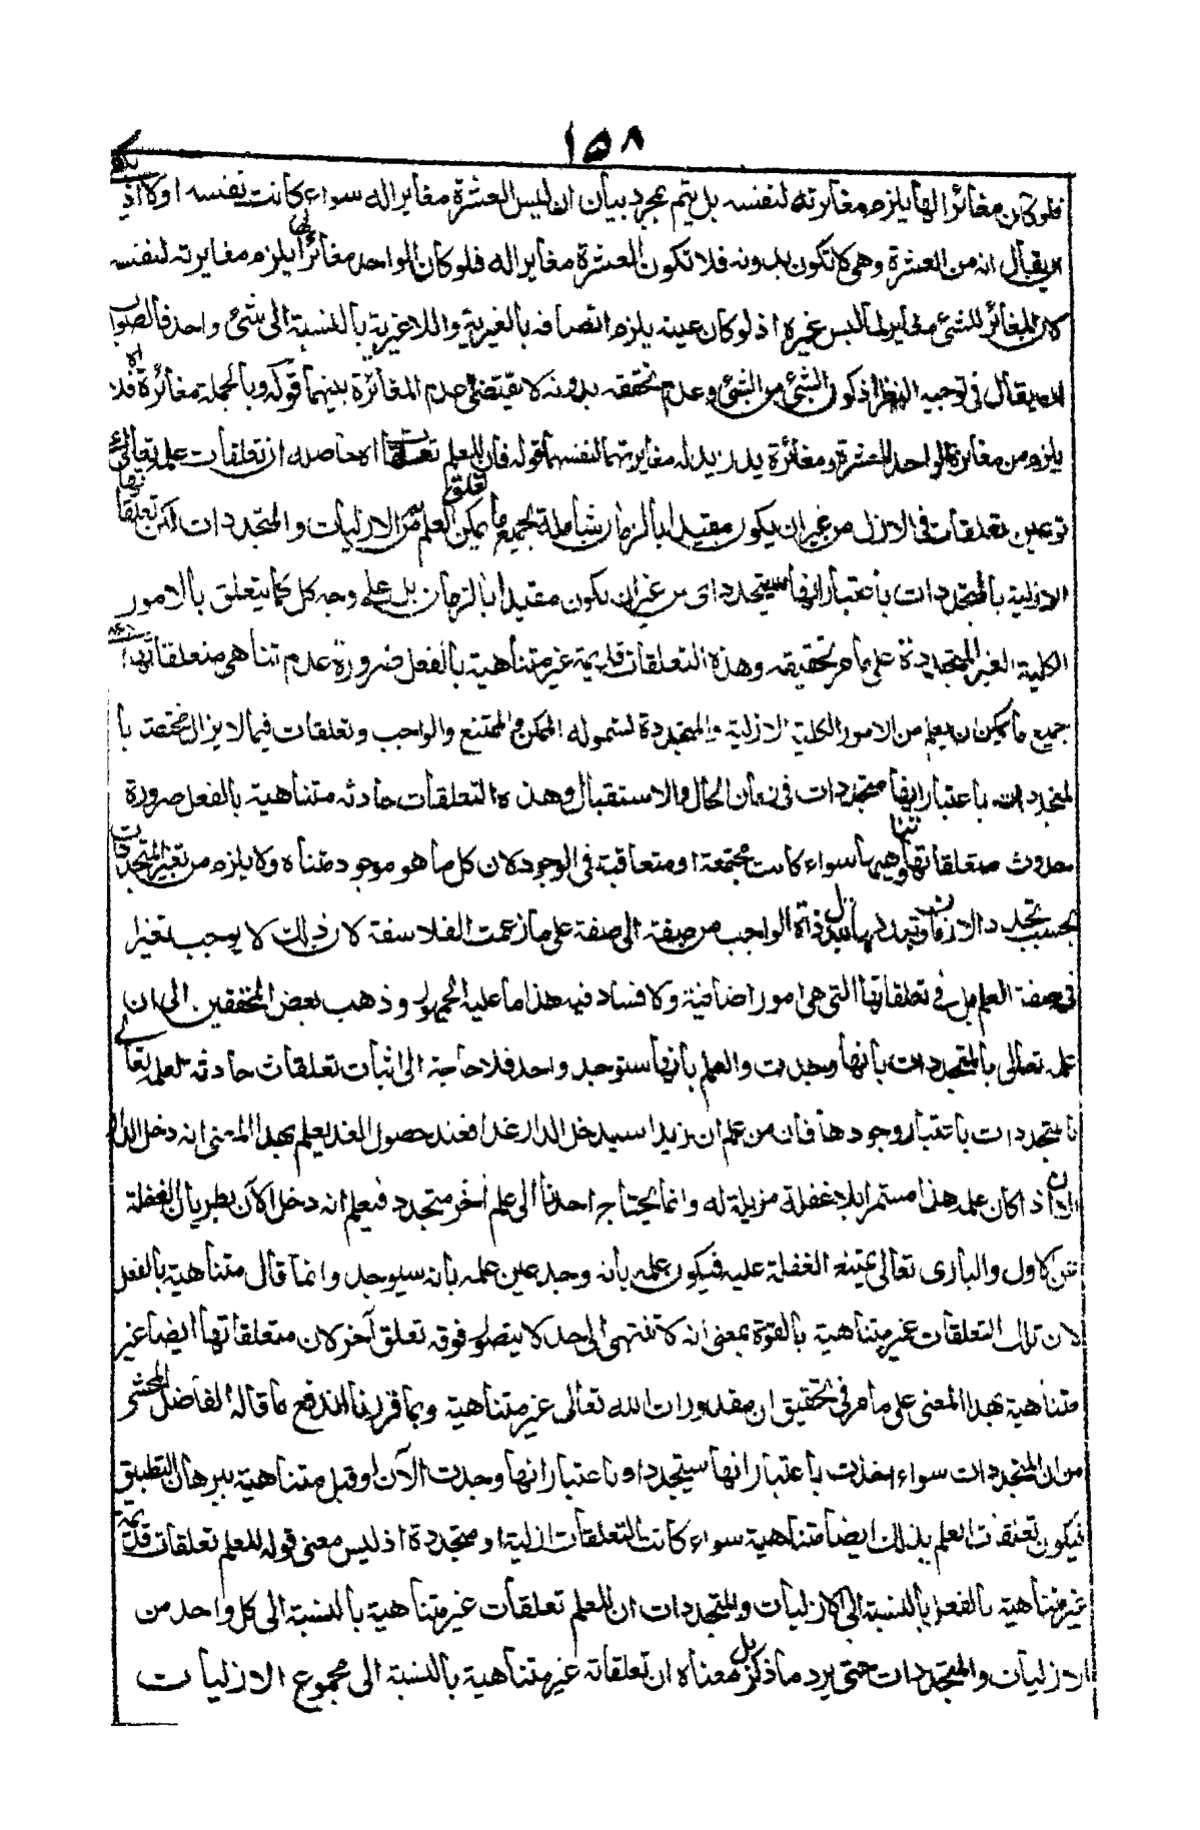 ١٥٨
فلو كان مغائرا لها يلزم مغائرته لنفسه بل يتم بمجرد بيان ان ليس العشرة مغايرا له سواء كانت نفسه اولا اذ يكفي
ان يقال انه من العشرة وهي لا تكون بدونه فلا تكون العشرة مغايرا له فلو كان الواحد مغائرا لها يلزم مغايرته لنفسه
لان المغائر للشئ مغاير لما ليس غيره اذ لو كان عينه يلزم اتصافه بالغيرية واللاغيرية بالنسبة الى شئ واحد فالصواب
ان يقال في توجيه النظر اذ كون الشئ من الشئ وعدم تحققه بدونه لا يقتضي عدم المغائرة بينهما قوله وبالجملة مغائرة اه فلا
يلزم من مغائرة الواحد للعشرة ومغائرة يد زيد له مغايرتهما لنفسهما قوله فان للعلم تعلقات اه حاصله ان تعلقات علمه تعالى
نوعين تعلقات في الازل من غير ان يكون مقيدا بالزمان شاملة لجميع ما يمكن تعلق العلم به من الازليات والمتجددات لكن تعلقاتها
الازلية بالمتجددات باعتبار انها ستتجدد اى من غير ان يكون مقيدا بالزمان بل على وجه كل كما يتعلق بالامور
الكلية الغير المتجددة على ما مر تحقيقه وهذه التعلقات قديمة غير متناهية بالفعل ضرورة عدم تناهي متعلقاتها
جميع ما يمكن ان يعلم من الامور الكلية الازلية والمتجددة لشموله الممكن والممتنع والواجب وتعلقات فيما لا يزال مختصة با
لمتجددات باعتبار انها متجددات في زمان الحال والاستقبال وهذه التعلقات حادثة متناهية بالفعل ضرورة
حدوث متعلقاتها وتناهيها سواء كانت مجتمعة او متعاقبة في الوجود لان كل ما هو موجود متناه ولا يلزم من تغير المتجددات
بحسب تجدد الازمان وتبدلها تبدل ذات الواجب من صفة الى صفة على ما زعمت الفلاسفة لان ذلك لا يوجب تغيرا
في صفة العلم بل في تعلقاتها التي هي امور اضافية ولا فساد فيه هذا ما عليه الجمهور وذهب بعض المحققين الى ان
علمه تعالى بالمتجددات بانها وجدت والعلم بانها ستوجد واحد فلا حاجة الى اثبات تعلقات حادثة لعلمه تعالى
بالمتجددات باعتبار وجودها فان من علم ان زيدا سيدخل الدار غدا فعند حصول الغد يعلم بهذا المعنى انه دخل الدار
الان اذا كان علمه هذا مستمرا بلا غفلة مزيلة له وانما يحتاج احدنا الى علم آخر متجدد فيعلم انه دخل الآن بطريان الغفلة
عن الاول والبارى تعالى يمتنع الغفلة عليه فيكون علمه بانه وجد عين علمه بانه سيوجد وانما قال متناهية بالفعل
لان تلك التعلقات غير متناهية بالقوة بمعنى انه لا تنتهي الى حد لا يتصور فوقه تعلق آخر لان متعلقاتها ايضا غير
متناهية بهذا المعنى على ما مر في تحقيق ان مقدورات الله تعالى غير متناهية وبما قررنا اندفع ما قاله الفاضل المحشي
من ان المتجددات سواء اخذت باعتبار انها سيتجدد او باعتبار انها وجدت الآن او قبل متناهية ببرهان التطبيق
فيكون تعلقات العلم بذلك ايضا متناهية سواء كانت التعلقات ازلية او متجددة اذ ليس معنى قوله للعلم تعلقات قديمة
غير متناهية بالفعل بالنسبة الى الازليات والمتجددات ان للعلم تعلقات غير متناهية بالنسبة الى كل واحد من
الازليات والمتجددات حتى يرد ما ذكر بل معناه ان تعلقاته غير متناهية بالنسبة الى مجموع الازليات